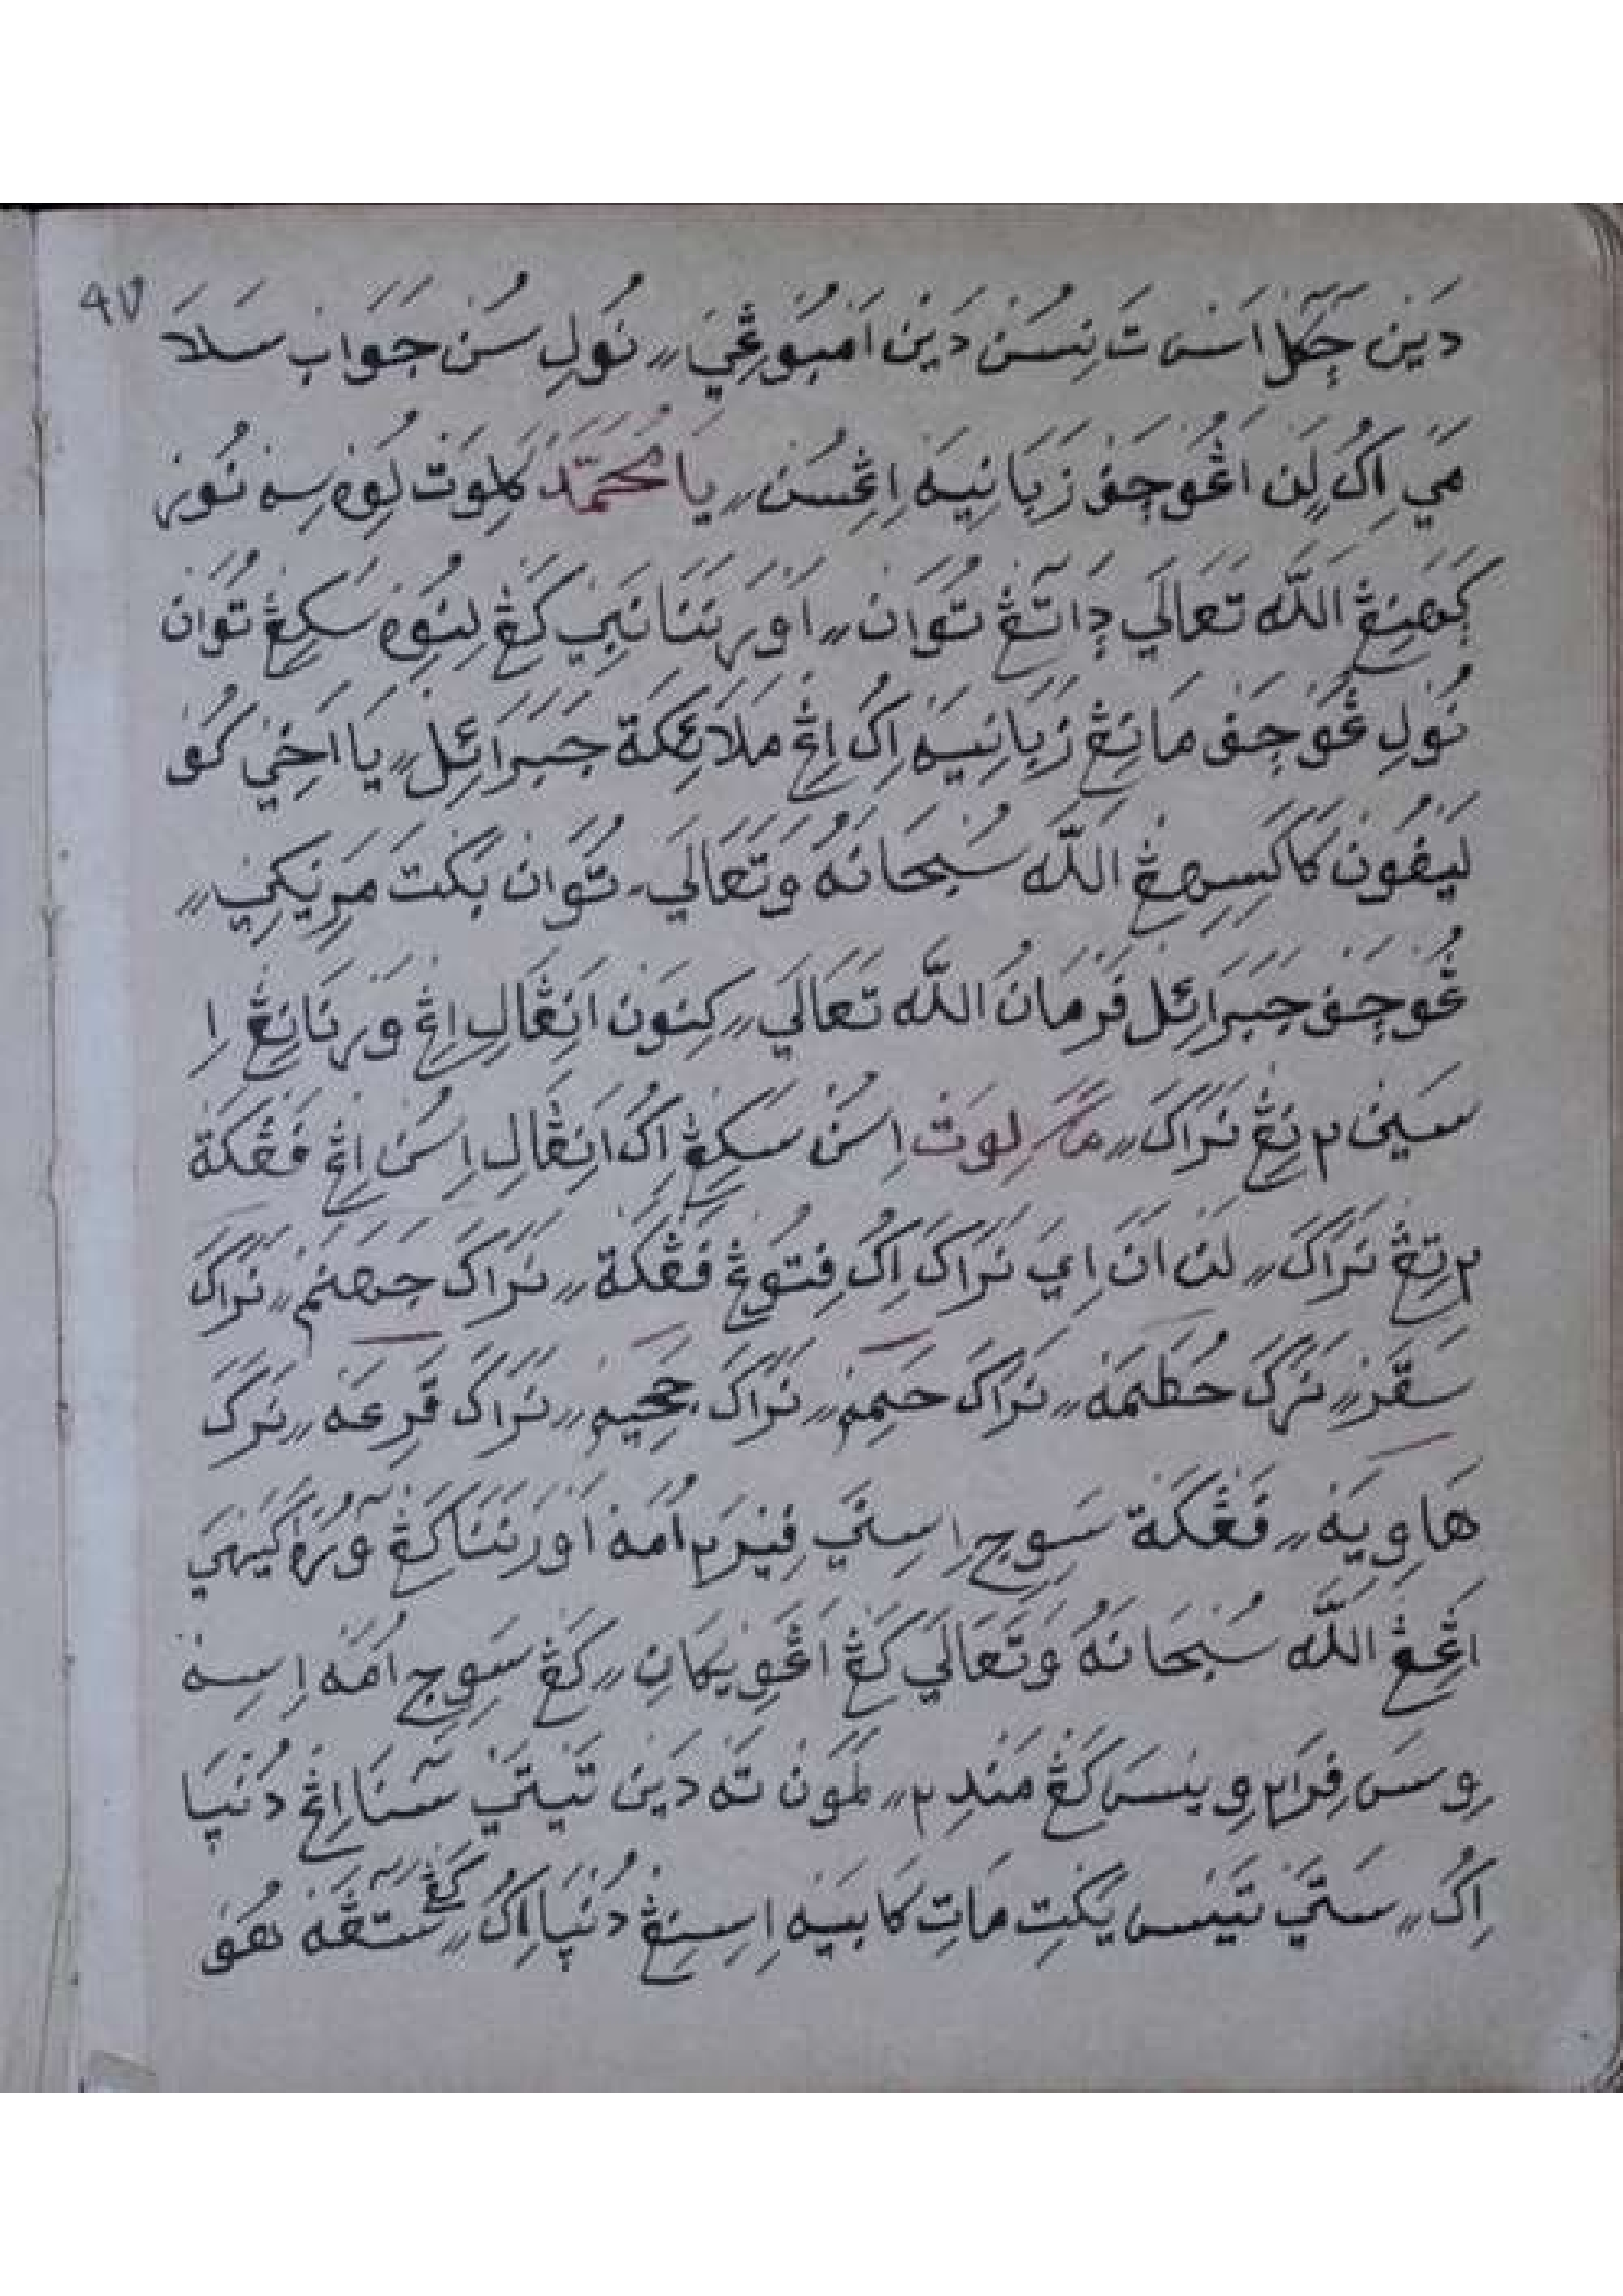 ٩٧
دَيْن جٓكَلْ اَسْ تَ نِسُنْ دَيْنْ اَمْبُوڠْيَ ٫٫ نُولِ سُنْ جَوَابْ سَلَا
مَيْ اِكُ لَنْ اَڠُوچَفْ زَبَانِيَهْ اِڠْسُنْ ٫٫ يَا مُحَمَّدْ كَلِوَتْ لُوِهْ سِهْ نُوْرْ
كَهَنِڠْ اللّٰه تَعَالَي دَاتَڠْ تُوَانْ ٫٫ اَوْرَنَنَا نَبِيْ كَڠْ لِنُوِهْ سَكِڠْ تُوَانْ
نُولِ ڠُوْجَفْ مَانِڠْ زَبَانِيَهْ اِكُ اِڠْ مَلَائِكَةْ جَبَرَائِلْ ٫٫ يَا اَخِيْ كُو
لَيْفُونْ كَاكَسِهِڠْ اللّٰه سُبْحَانَهُ وَتَعَالَي ٫ تُوَانْ بَكْتَ مَرَنِيْكِيْ ٫٫
ڠُوْچَفْ جَبَرَائِلْ فَرْمَانُ اللّٰه تَعَالَي ٫٫ كِنَوْنْ اَنِڠَالِ اِڠْ وَرْنَانِڠْ اِ
سَيْنْ٢نِڠْ نَرَاكَ ٫٫ مَڬ لِوَتْ اِسُنْ سَكِڠْ اِكُ اَنِڠَالِ اِسُنْ اِڠْ فَڠْكَةْ
٢تِڠْ نَرَاكَ ٫٫ لَنْ اَنَ اِيَ نَرَاكَ اِكُ فِتُوڠْ فَڠْكَةْ ٫٫ نَرَاكَ جَهَنَمْ ٫٫ نَرَاكَ
سَقَرْ ٫٫ نَرَكَ حُطَمَهْ ٫٫ نَرَاكَ حَمِيْمْ ٫٫ نَرَاكَ جَحِيْمْ ٫٫ نَرَاكَ قَرِعَهْ ٫٫ نَرَكَ
هَاوِيَهْ ٫٫ فَڠْكَةْ سَوِجِ اِسِنَيْ فِنِيْرَ٢ اُمَهْ اَوْرَنَنَا كَڠْ وٓرُهْ اَكَيْهَيْ
اَڠِڠْ اللّٰه سُبْحَانَهُ وَتَعَالَي كَڠْ اَڠْوِيْكَانِ ٫٫ كَڠْ سَوِجِ اُمَهْ اِسِهْ
وِسَ فِرَا٢ وِيْسَ كَڠْ مَنْدِ٢ ٫٫ لَمُوْنْ تَهْ دَيْنْ تَيْتَيْ سٓنَا اِڠْ دُنْيَا
اِكُ ٫٫ سَتَيْ تَيْسْ يَكْتِ مَاتِ كَابَيْهْ اِسِنِڠْ دُنْيَا اِكُ ٫٫ كَڠْ سٓتٓڠَهْ هُفْ